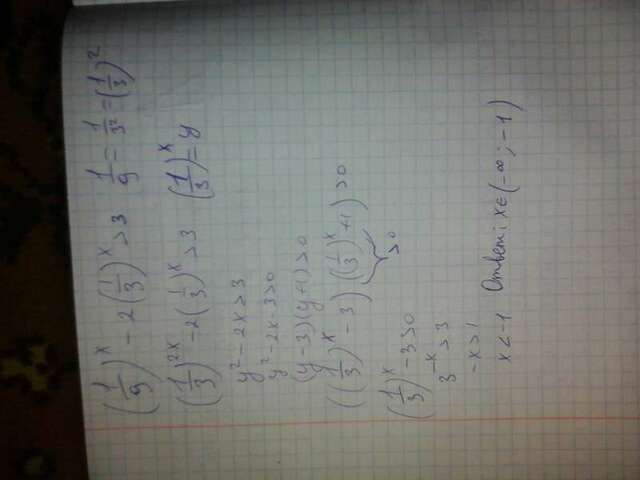 (1/9)^x - 2(1/3)^x > 3 1/9 = 1/3² = (1/3)²
(1/3)^2x - 2(1/3)^x > 3 (1/3)^x = y
y² - 2x > 3
y² - 2x - 3 > 0
(y - 3)(y + 1) > 0
((1/3)^x - 3)((1/3)^x + 1) > 0
> 0
(1/3)^x - 3 > 0
3^-x > 3
-x > 1
x < -1 Ответ: x ∈ (-∞; -1)